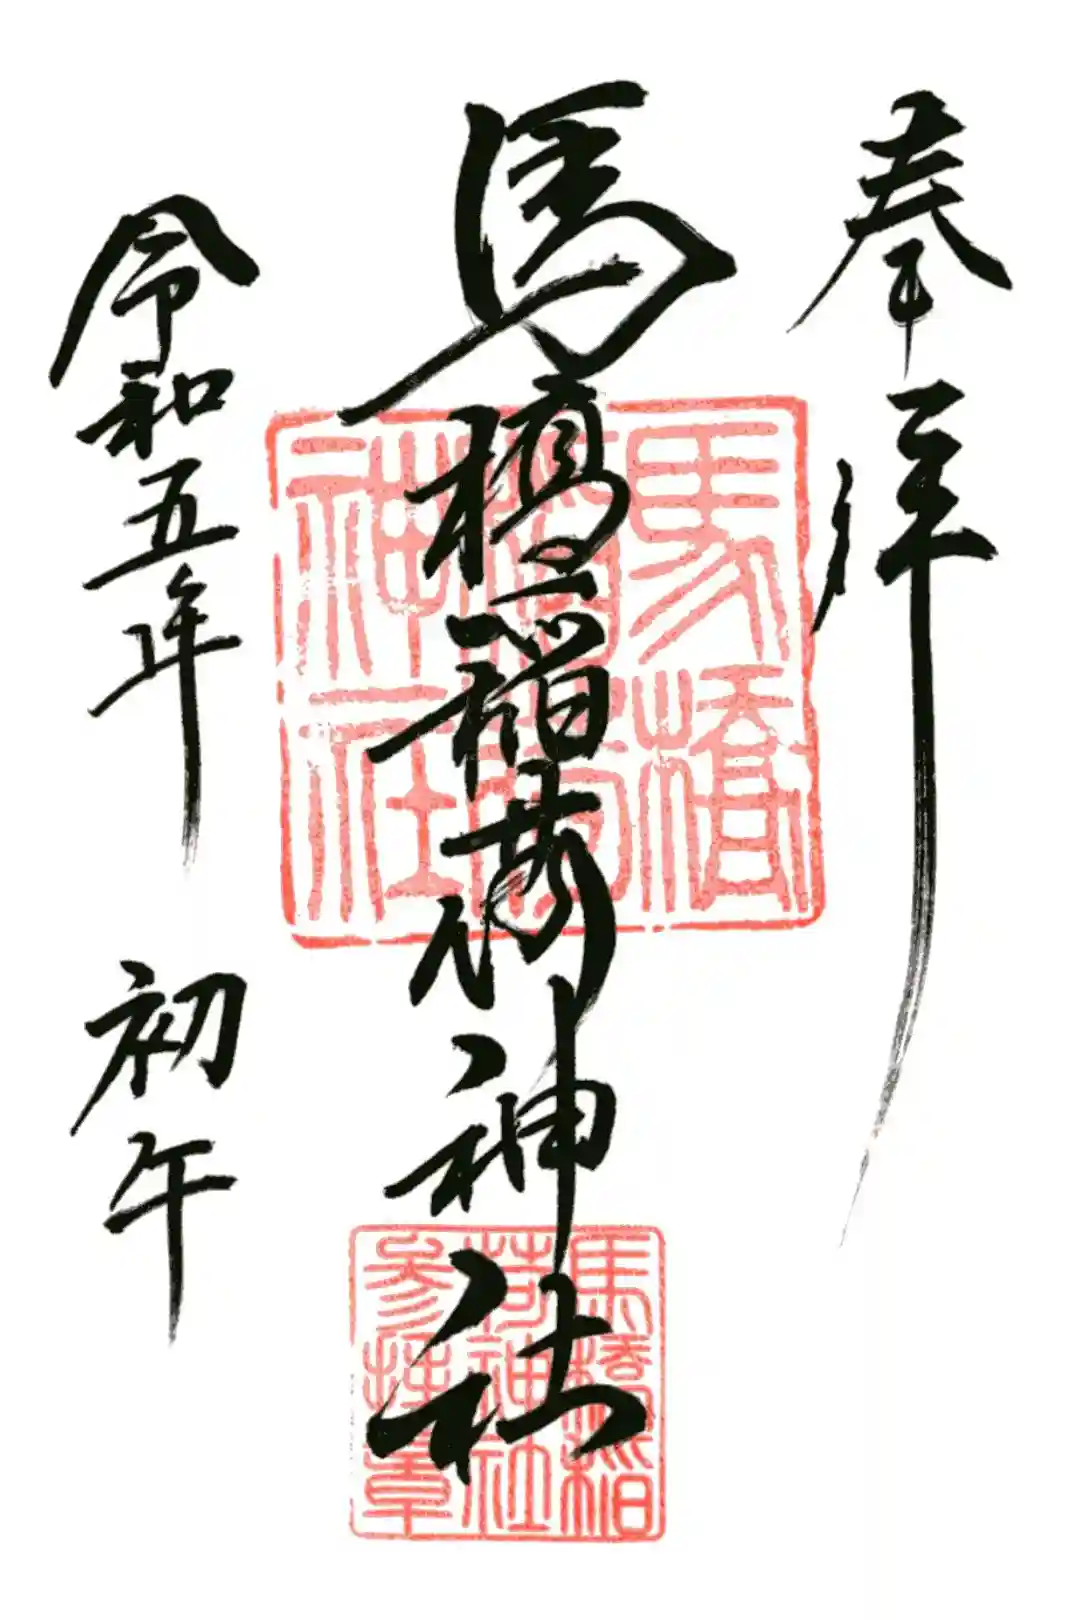 奉拝
馬橋稲荷神社
令和五年 初午
馬橋稲荷神社
馬橋稲荷神社参拝章